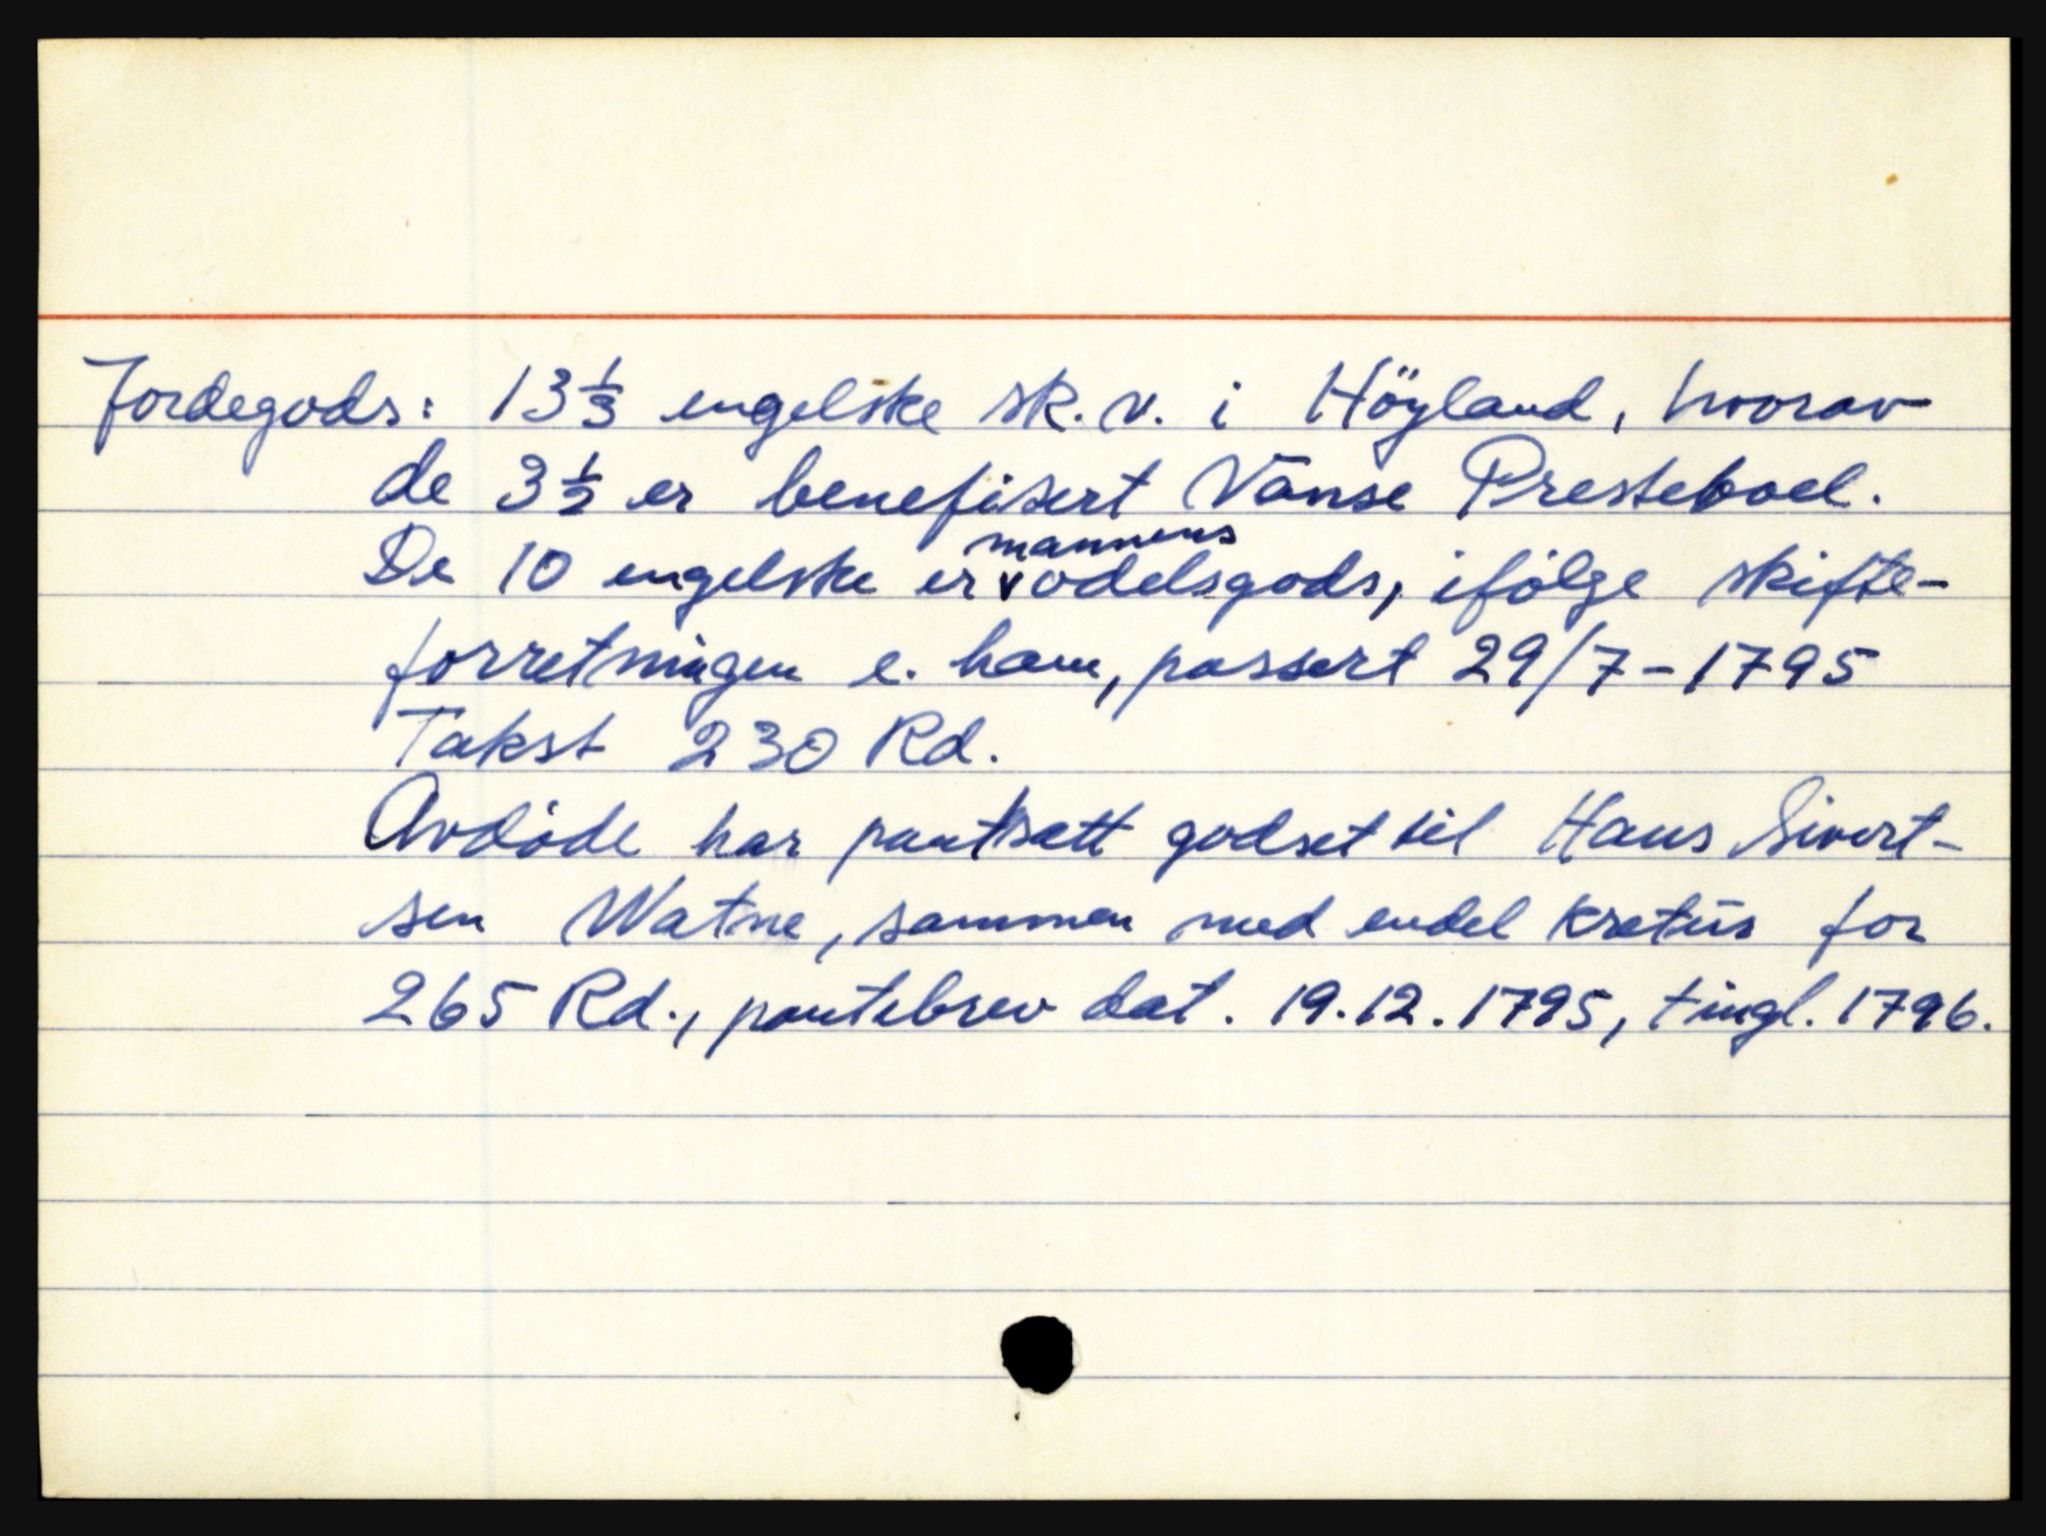 Jordegods: 13 1/3 engelske sk. v. i Höyland, hvorav
de 3 1/3 er benefisert Vanse Presteboel.
mannens
De 10 engelske er v odelsgods, ifölge skifte-
forretningen e. ham, passert 29/7-1795
Takst 230 Rd.
Avdöde har pantsatt godset til Hans Sivert-
sen Watne, sammen med endel kretur for
265 Rd., pantebrev dat. 19.12.1795, tingl. 1796.